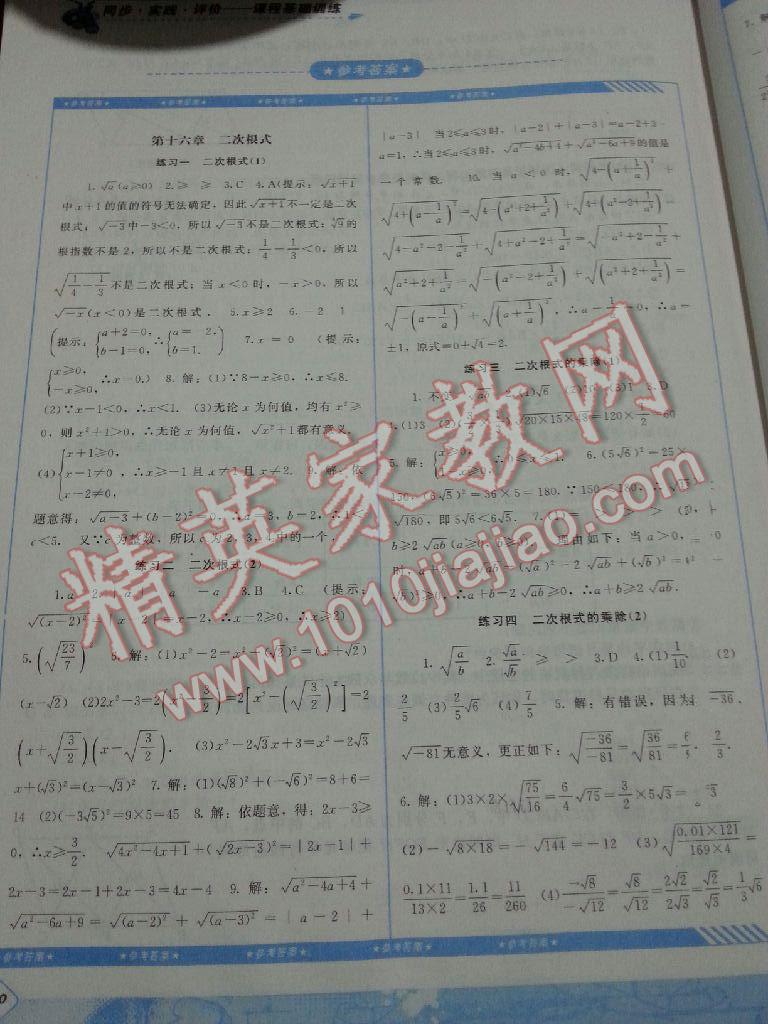 同步·实践·评价——课程基础训练
★参考答案★
第十六章 二次根式
练习一 二次根式(1)
1.√a(a≥0) 2.≥ ≥ 3.C 4.A(提示:√(x+1)
中x+1的值的符号无法确定,因此√(x+1)不一定是二次
根式;√-3中-3<0,所以√-3不是二次根式;∛a的
根指数不是2,所以不是二次根式;1/4-1/3<0,所以
√(1/4-1/3)不是二次根式;当x<0时,-x>0,所以
√-x(x<0)是二次根式. 5.x≥2 6.-2 1
(提示:{a+2=0, b-1=0, ∴{a=-2, b=1.) 7.x=0 (提示:
{x≥0, -x≥0, ∴x=0.) 8.解:(1)∵8-x≥0,∴x≤8.
(2)∵x-1<0,∴x<1. (3)无论x为何值,均有x²≥
0,则x²+1>0,∴无论x为何值,√(x²+1)都有意义.
(4){x+1≥0, x-1≠0, x-2≠0, ∴x≥-1且x≠1且x≠2. 9.解:依
题意得:√(a-3)+(b-2)²=0,∴a=3,b=2,∴1<
c<5. 又∵c为整数,所以c为2,3,4中的一个.
练习二 二次根式(2)
3.B 4.C (提示
√(x-2)²=|x-2|=x-2,∴x-2≥0,∴x≥2)
5.(√(23/7)) 6.解:(1)x²-2=x²-(√2)²=(x+√2)
(x-√2) (2)2x²-3=2(x²-3/2)=2[x²-(√(3/2))²]=2
(x+√(3/2))(x-√(3/2)). (3)x²-2√3x+3=x²-2√3
x+(√3)²=(x-√3)² 7.解:(1)(√8)²+(-√6)²=8+6=
14 (2)(-3√5)²=9×5=45 8.解:依题意,得:2x-3≥
0,∴x≥3/2. √(4x²-4x+1)+(√(2x-3))²=|2x-1|+
2x-3=2x-1+2x-3=4x-4 9.解:√(a²-4a+4)+
√(a²-6a+9)=√(a-2)²+√(a-3)²=|a-2|+
|a-3| 当2≤a≤3时,|a-2|+|a-3|=a-2+3-
a=1,∴当2≤a≤3时,√(a²-4a+4)+√(a²-6a+9)的值是
一个常数. 10.当a<0时,√(4-(a+1/a)²)+
√(4+(a-1/a)²)=√(4-(a²+2+1/a²))+√(4+(a²-2+1/a²))=
√(4-a²-2-1/a²)+√(4+a²-2+1/a²)=√(-a²+2-1/a²)+
√(a²+2+1/a²)=√(-(a²-2+1/a²))+√(a²+2+1/a²)=
√(-(a-1/a)²)+√(a+1/a)²,∴a-1/a=0,∴a=
±1,原式=0+√4=2.
练习三 二次根式的乘除(1)
3.D
√(20×15×48)=120×1/2=60
5.解:{x≥0, 1-x≥0, ∴0≤x≤1. 6.(5√6)²=25×
150,(6√5)²=36×5=180.∵150<180,∴√150<
√180,即5√6<6√5. 7.(1)= > > (2)
b≥2√ab(a≥0,b≥0). 理由如下:当a>0,
时,a+b-2√ab=(√a)²-2√ab+(√b)²=
√b)²≥0,∴a+b-2√ab≥0,∴a+b≥2√ab.
练习四 二次根式的乘除(2)
1.√(a/b) 2.√a/√b ≥ > 3.D 4.(1)1/10 (2)
2/5 (3)2/5√6 (4)7/5 5.解:有错误,因为√-36,
√-81无意义,更正如下:√(-36/-81)=√(36/81)=6/9=2/3.
6.解:(1)3×2×√(75/16)=6/4√75=3/2×5√3=
(2)-√(8×18)=-√144=-12 (3)√(0.01×121/169×4)=
0.1×11/13×2=1.1/26=11/260 (4)-√8/-√12=√8/√12=2√2/2√3=√2/√3=1/3√6
精英家教网
www.1010jiajiao.com
参考答案★ ★参考答案★ ★参考答案★ ★参考答案★ ★参考答案★